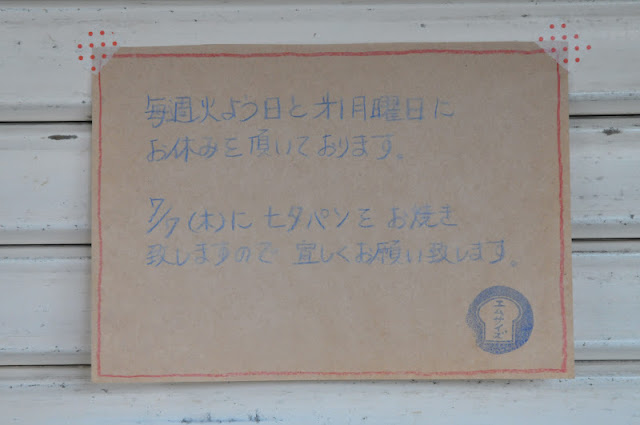 毎週火よう日と才1月曜日に
お休みを頂いております。
7/7(木)に七夕パンをお焼き
致しますので宜しくお願い致します。
エムサイズ